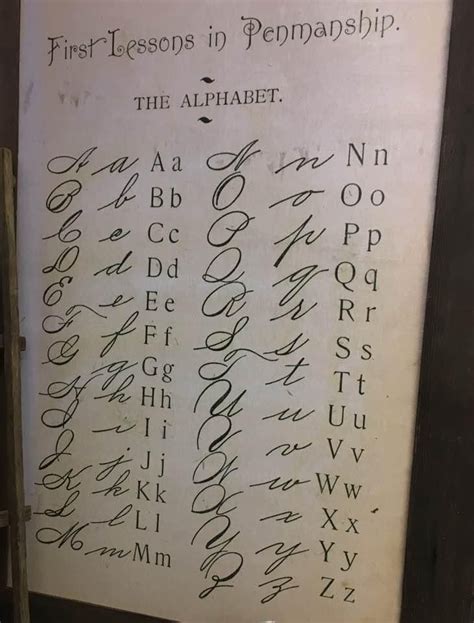 First Lessons in Penmanship.
THE ALPHABET.
A a Aa N n Nn
B b Bb O o Oo
C c Cc P p Pp
D d Dd Q q Qq
E e Ee R r Rr
F f Ff S s Ss
G g Gg T t Tt
H h Hh U u Uu
I i Ii V v Vv
J j Jj W w Ww
K k Kk X x Xx
L l Ll Y y Yy
M m Mm Z z Zz